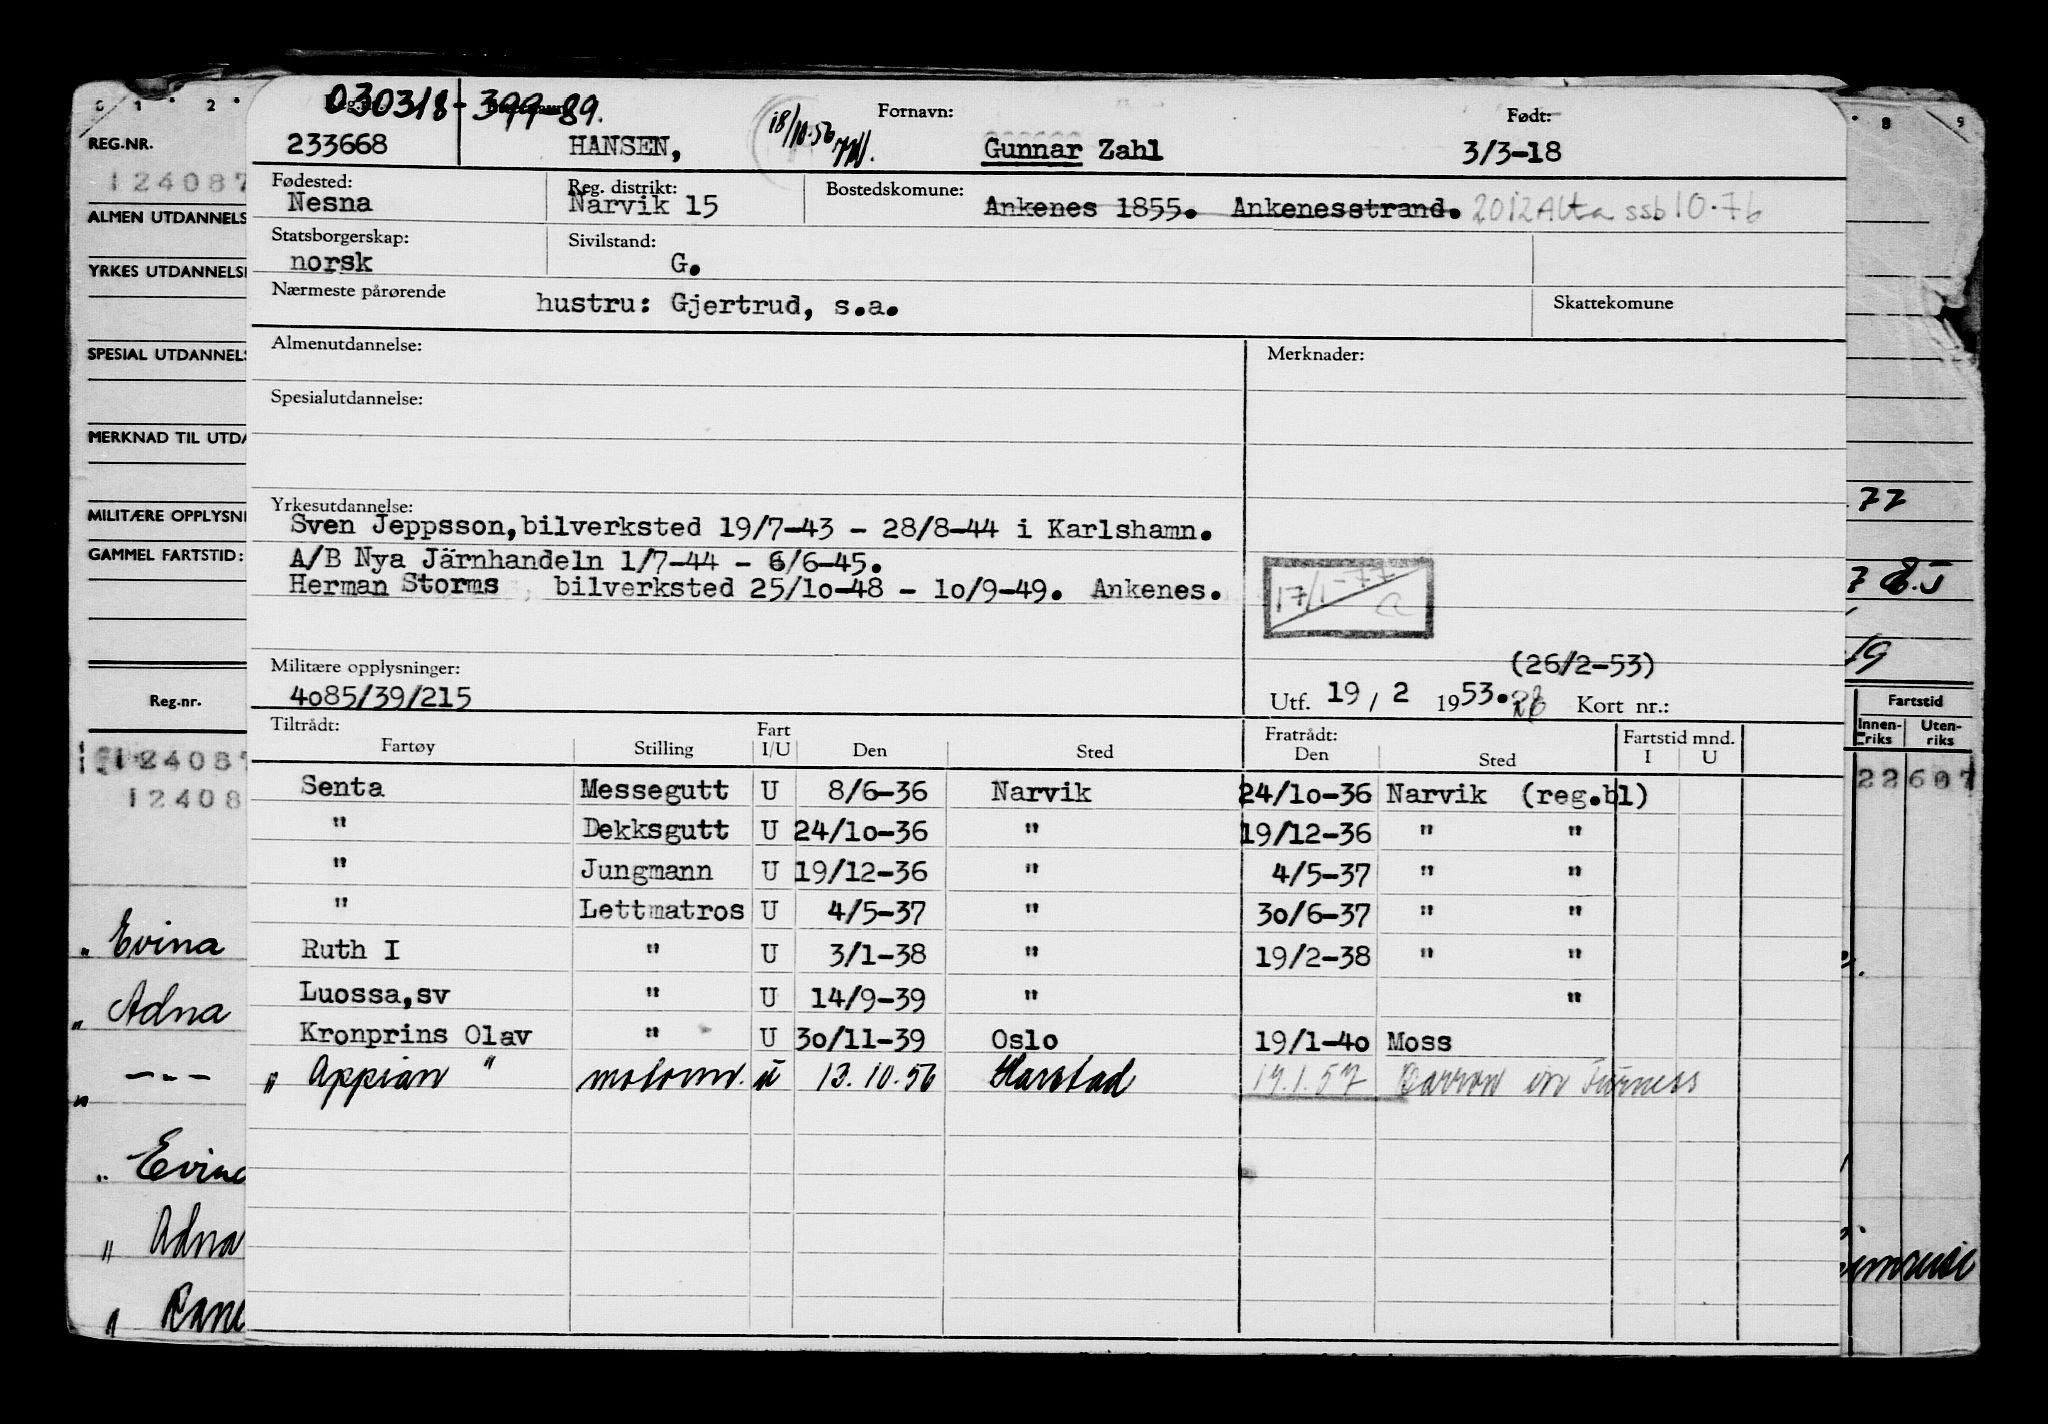 030318-39989.
Reg.nr. Fornavn: Født:
233668 HANSEN, 18/10.56 Gunnar Zahl 3/3-18
Fødested: Reg. distrikt: Bostedskomune:
Nesna Narvik 15 Ankenes 1855. Ankenesstrand. 2012 Alta ssb 10.76
Statsborgerskap: Sivilstand:
norsk G.
Nærmeste pårørende hustru: Gjertrud, s.a. Skattekomune
Almenutdannelse: Merknader:
Spesialutdannelse:
Yrkesutdannelse:
Sven Jeppsson, bilverksted 19/7-43 - 28/8-44 i Karlshamn.
A/B Nya Järnhandeln 1/7-44 - 6/6-45.
Herman Storms, bilverksted 25/10-48 - 10/9-49. Ankenes.
17/1-77
(26/2-53)
Militære opplysninger:
4085/39/215 Utf. 19 / 2 1953. Kort nr.:
Tiltrådt: Fratrådt: Fartstid mnd.
Fartøy Stilling Fart I/U Den Sted Den Sted I U
Senta Messegutt U 8/6-36 Narvik 24/10-36 Narvik (reg.bl)
" Dekksgutt U 24/10-36 " 19/12-36 " "
" Jungmann U 19/12-36 " 4/5-37 " "
" Lettmatros U 4/5-37 " 30/6-37 " "
Ruth I " U 3/1-38 " 19/2-38 " "
Luossa,sv " U 14/9-39 " "
Kronprins Olav " U 30/11-39 Oslo 19/1-40 Moss
" Appian " motorm. u 13.10.56 Harstad 19.1.57 Barrow in Furness
REG.NR.
124087
ALMEN UTDANNELS
YRKES UTDANNELS
SPESIAL UTDANNELS
MERKNAD TIL UTDA
MILITÆRE OPPLYSNI
GAMMEL FARTSTID:
Reg.nr.
124087
12408
" Evina
" Adna
" -"-
" Evina
" Adna
" Rane
8 9
77
19
Fartstid
Innenriks Utenriks
22607